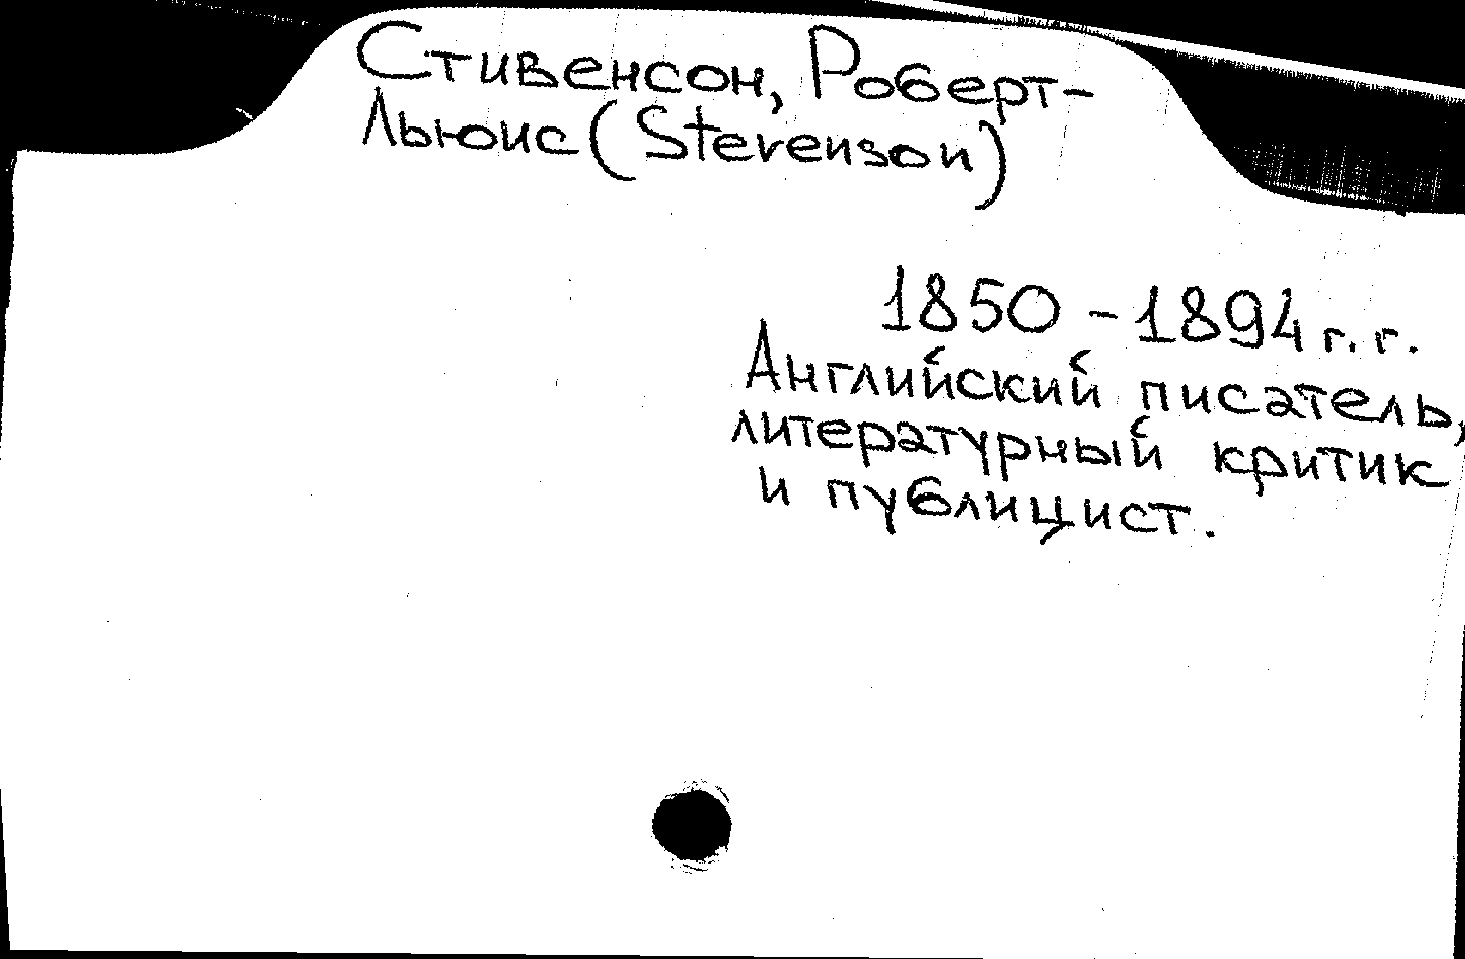 Стивенсон, Роберт-
Льюис (Stevenson)
1850 - 1894 г. г.
Английский писатель,
литературный критик
и публицист.